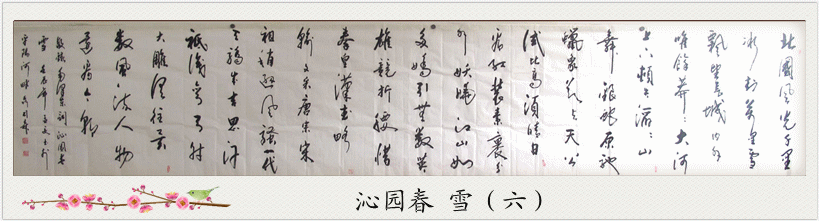 北國風光千里
冰封萬里雪
飘望長城内外
唯餘莽莽大河
上下頓失滔滔山
舞銀蛇原馳
蠟象欲與天公
試比高須晴日
看红裝素裹分
外妖嬈江山如
多嬌引無數英
雄競折腰惜
秦皇漢武略
輸文采唐宗宋
祖稍遜風騷一代
天驕成吉思汗
祗識彎弓射
大雕俱往矣
數風流人物
還看今朝
敬録毛澤東詞沁園春
雪
沁园春 雪（六）